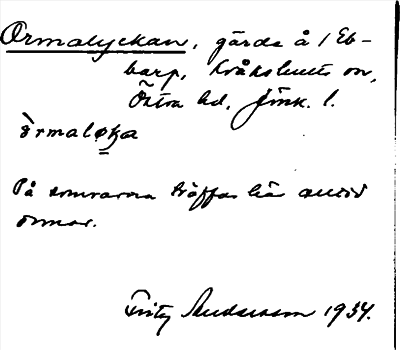 Ormalyckan, gärde å 1 Eb-
barp, Kråkshults sn,
Östra hd, Jönk. l.
òrmaløka
På somrarna träffas här alltid
ormar.
Fritz Andersson 1934.